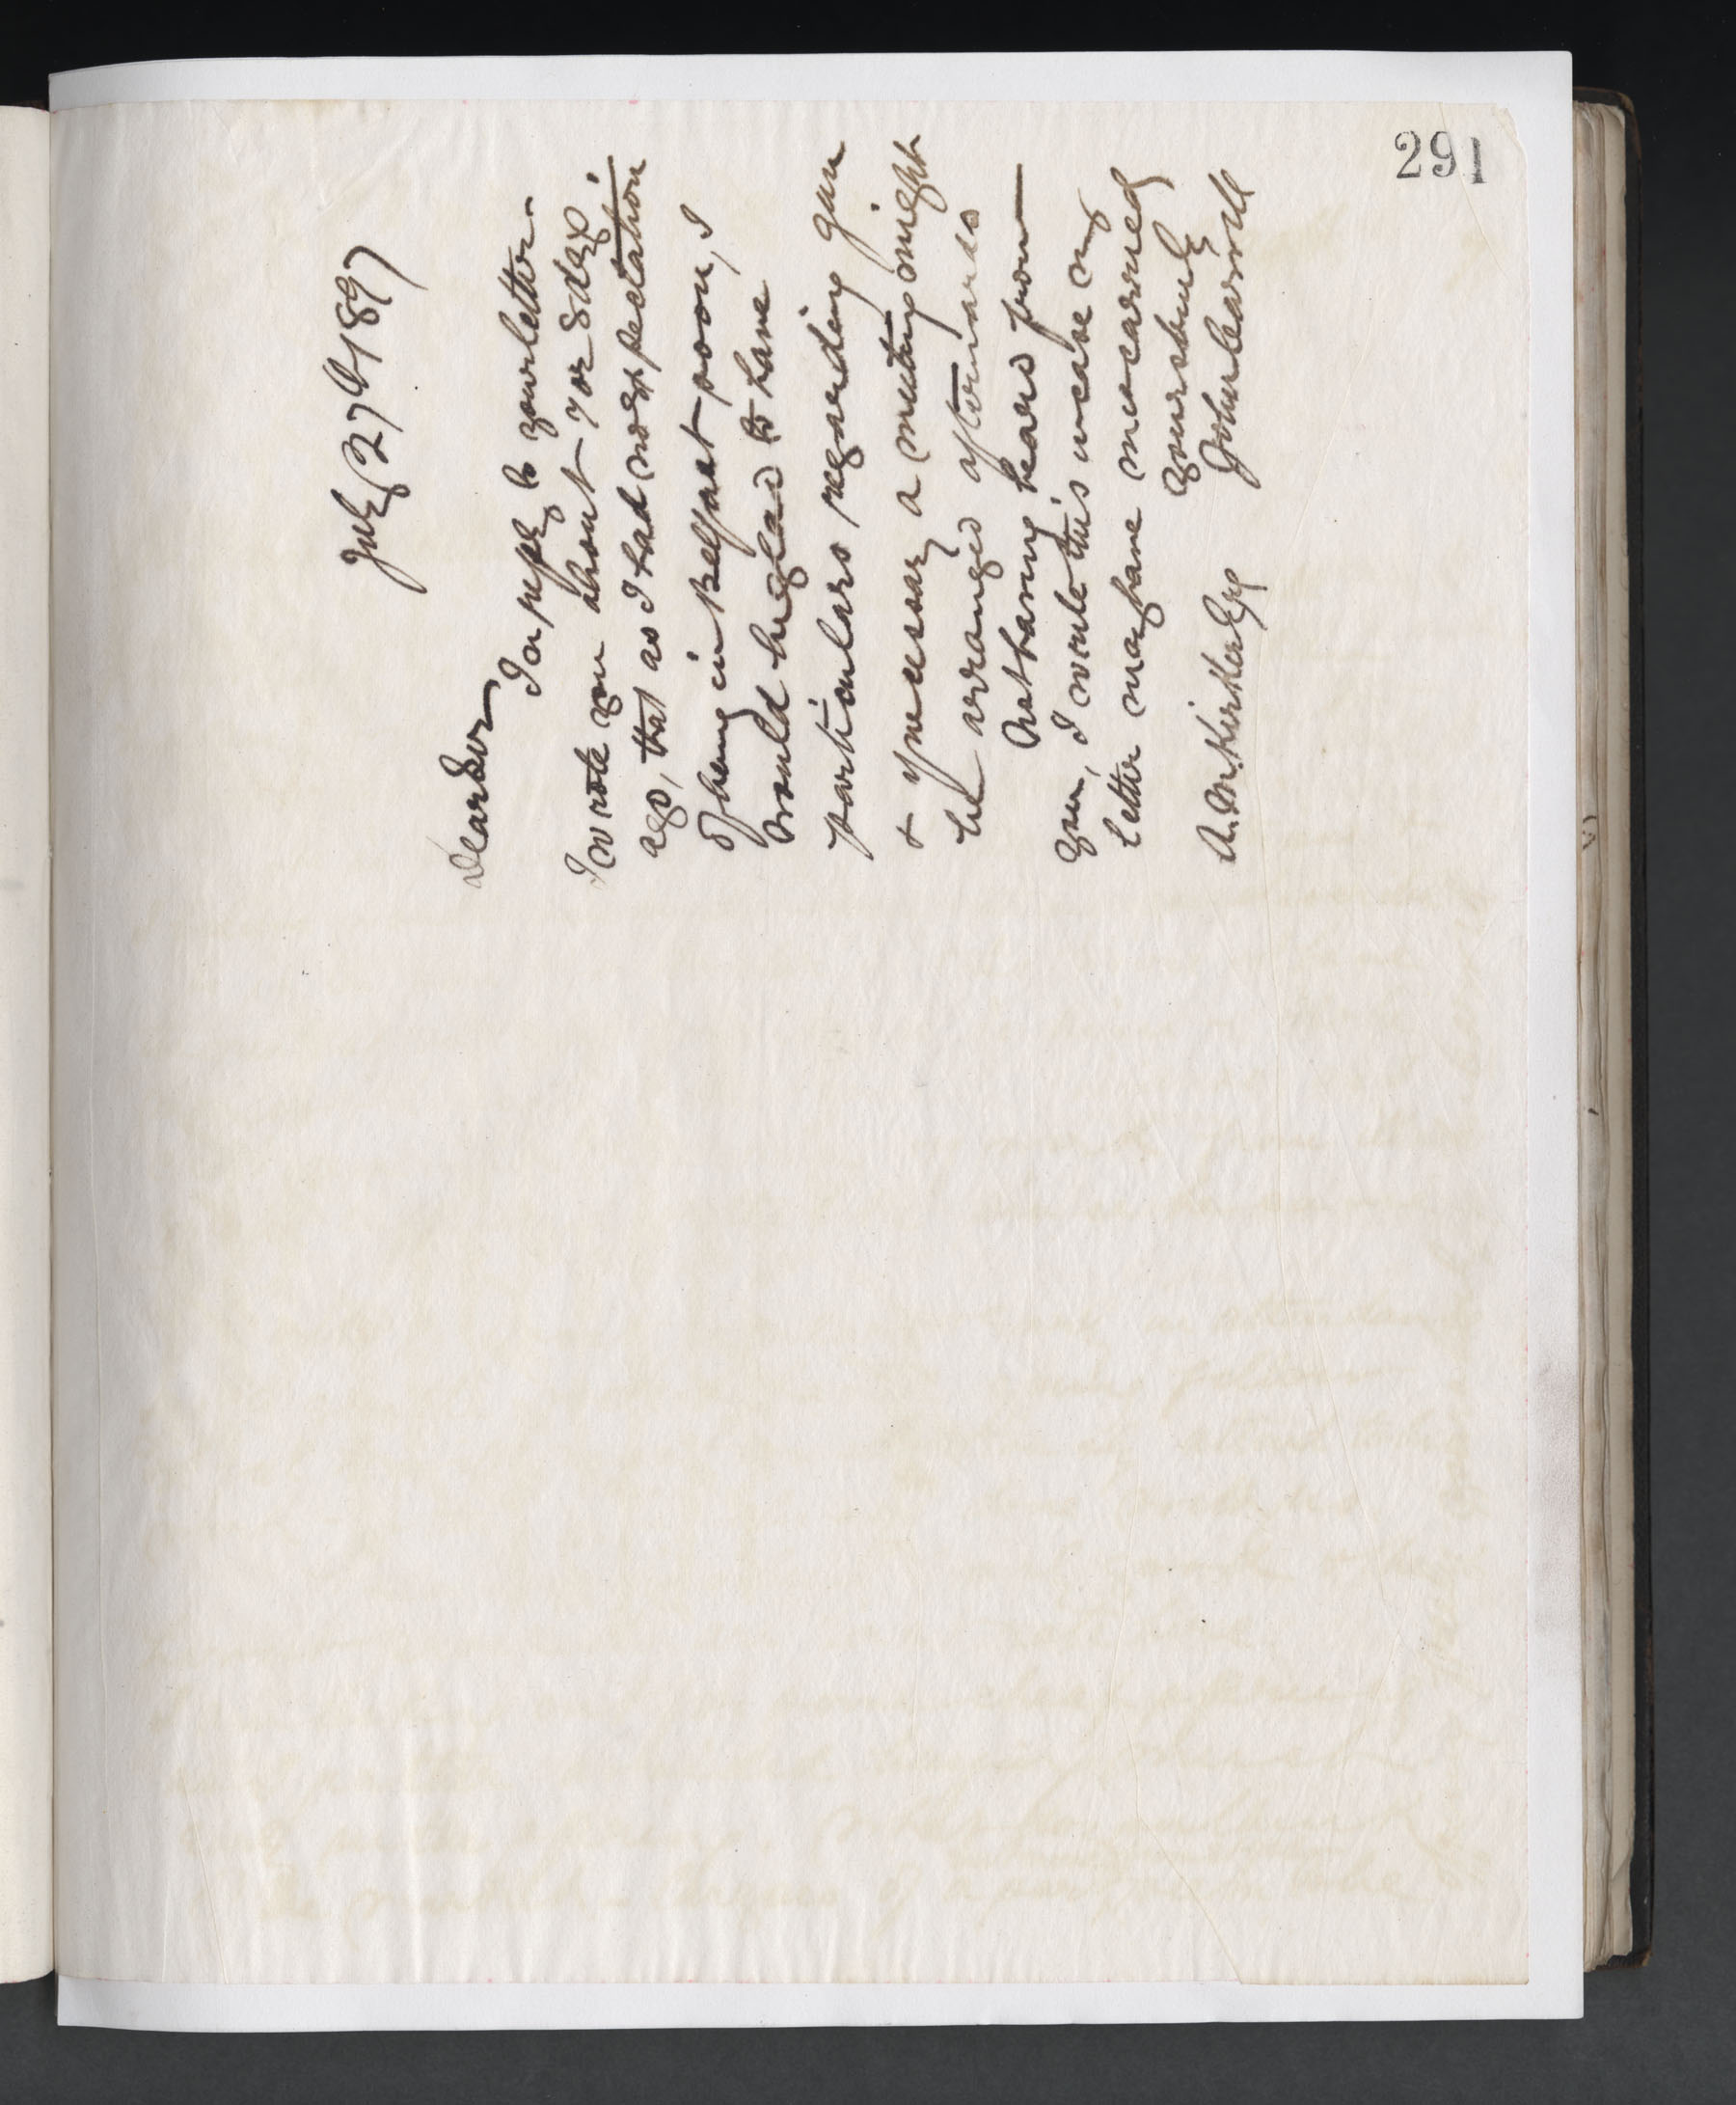 291
July 27th 1897
Dear Sir
In reply to your letter
I wrote you about 7 or 8 days
ago, that as I had no expectation
of being in Belfast soon, I
would be glad to have
particulars regarding gun
& if necessary a meeting might
be arranged afterwards
Not having heard from
you, I write this in case my
letter may have miscarried
Yours truly
A. M. Kirker Esq John Casement